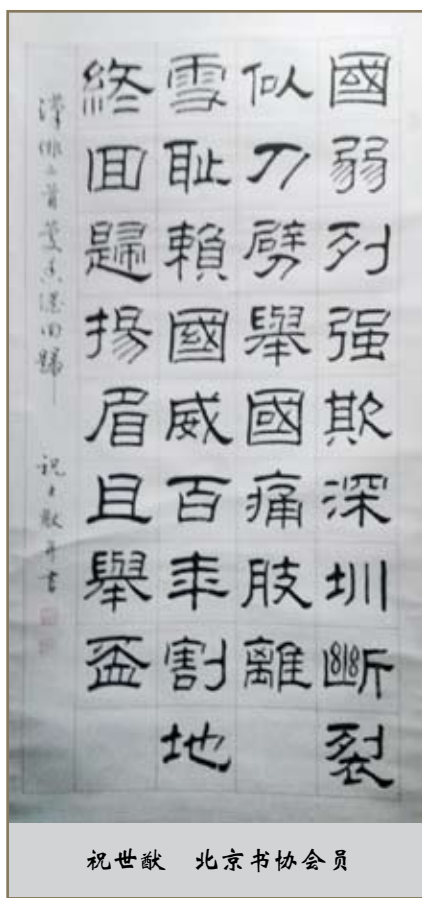 國弱列强欺深圳斷裂
似刀劈舉國痛肢離
雪耻賴國威百年割地
終回歸揚眉且舉盃
漢俳二首慶香港回歸——祝世猷并書
祝世猷 北京书协会员